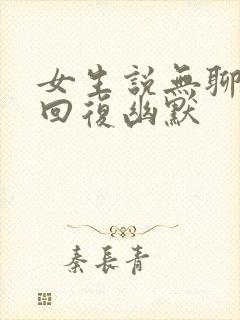 女生説無聊
回復幽默
秦長青